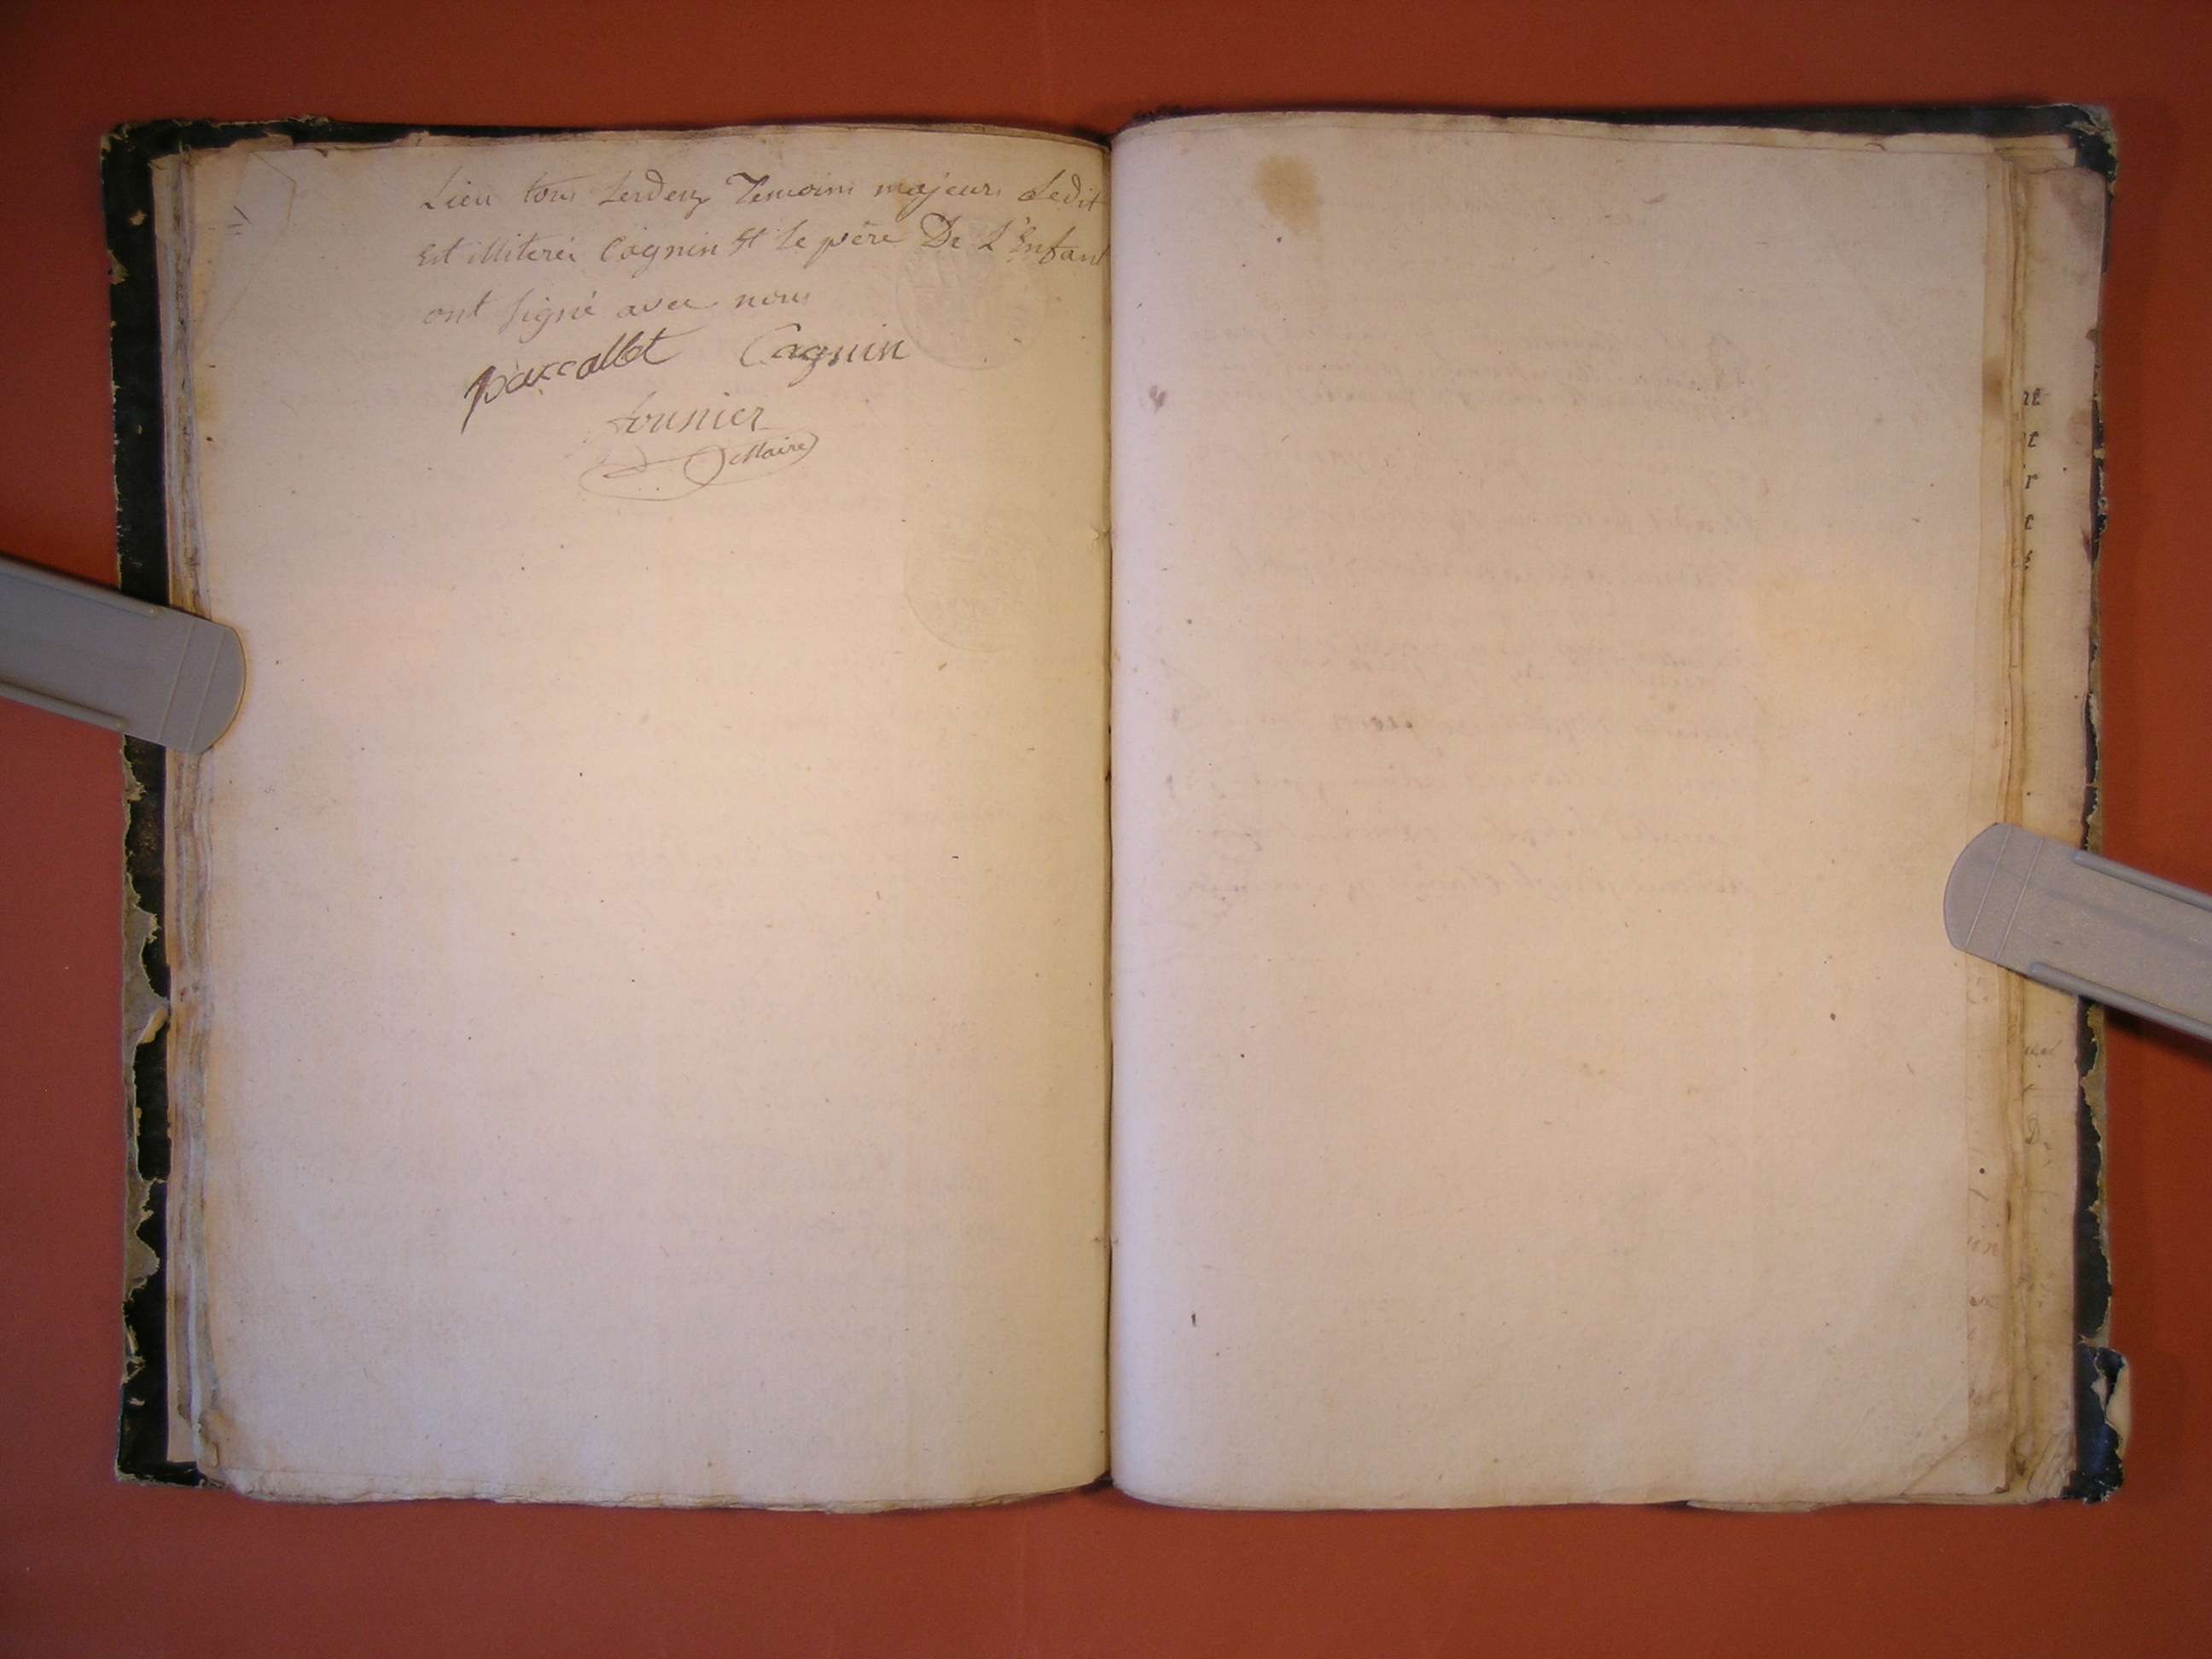 Lieu tous Lesdeux Temoins majeurs Ledit
Est illiteré Cagnin Et Le père De L'Enfant
ont signé avec nous
parcollet Cagnin
fournier
Maire